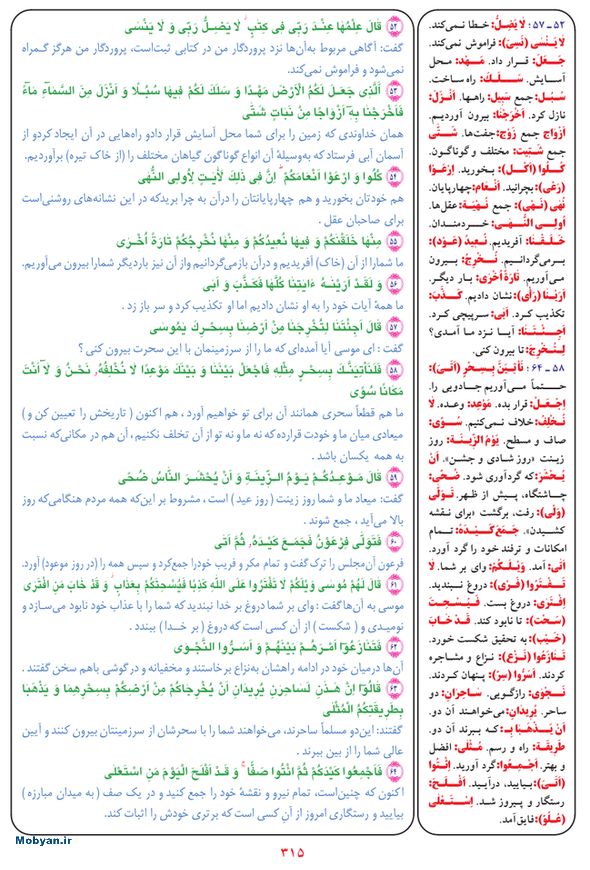 ۵۲ - ۵۷ : لا یَضِلُّ: خطا نمی‌کند.
لا یَنْسَی (نَسِیَ): فراموش نمی‌کند.
جَعَلَ: قرار داد. مَهْد: محل
آسایش. سَلَکَ: راه ساخت.
سُبُل: جمع سَبِیل: راهها. أَنْزَلَ:
نازل کرد. أَخْرَجْنَا: بیرون آوردیم.
أَزْوَاج جمع زَوْج: جفت‌ها. شَتَّی
جمع شَتِیت: مختلف و گوناگون.
کُلُوا (أَکَلَ): بخورید. اِرْعَوْا
(رَعَی): بچرانید. أَنْعَام: چهارپایان.
نُهَی (نَهَی): جمع نُهْیَة: عقل‌ها.
أُولِی النُّهَی: خردمندان.
خَلَقْنَا: آفریدیم. نُعِیدُ (عَوَدَ):
برمی‌گردانیم. نُخْرِجُ: بیرون
می‌آوریم. تَارَةً أُخْرَی: بار دیگر.
أَرَیْنَا (رَأَی): نشان دادیم. کَذَّبَ:
تکذیب کرد. أَبَی: سرپیچی کرد.
أَجِئْتَنَا: آیا نزد ما آمدی؟
لِتُخْرِجَ: تا بیرون کنی.
۵۸ - ۶۴ : نَأْتِیَنَّ بِسِحْرٍ (أَتَیَ):
حتماً می‌آوریم جادویی را.
اِجْعَلْ: قرار بده. مَوْعِد: وعده. لا
نُخْلِفُ: خلاف نمی‌کنیم. سُوًی:
صاف و مسطح. یَوْمُ الزِّینَة: روز
زینت «روز شادی و جشن». أَنْ
یُحْشَرَ: که گردآوری شود. ضُحًی:
چاشتگاه، پیش از ظهر. تَوَلَّی
(وَلَی): رفت، برگشت «برای نقشه
کشیدن». جَمَعَ کَیْدَهُ: تمام
امکانات و ترفند خود را گرد آورد.
أَتَی: آمد. وَیْلَکُمْ: وای بر شما. لا
تَفْتَرُوا (فَرَی): دروغ نبندید.
اِفْتَرَی: دروغ بست. فَیُسْحِتَ
(سَحَتَ): تا نابود کند. قَدْ خَابَ
(خَیَبَ): به تحقیق شکست خورد.
تَنَازَعُوا (نَزَعَ): نزاع و مشاجره
کردند. أَسَرُّوا (سِرّ): پنهان کردند.
نَجْوَی: رازگویی. سَاحِرَانِ: دو
ساحر. یُرِیدَانِ: می‌خواهند آن دو.
أَنْ یَذْهَبَا بِـ: کـه ببرند آن دو.
طَرِیقَة: راه و رسم. مُثْلَی: افضل
و بهتر. أَجْمِعُوا: گرد آورید. اِئْتُوا
(أَتَیَ): بیایید، درآیید. أَفْلَحَ:
رستگار و پیروز شد. اِسْتَعْلَی
(عَلَوَ): فایق‌آمد.
۵۲ قَالَ عِلْمُهَا عِنْدَ رَبِّی فِی کِتٰبٍ ۖ لَا یَضِلُّ رَبِّی وَ لَا یَنْسَی
گفت: آگاهی مربوط به‌آن‌ها نزد پروردگار من در کتابی ثبت‌است، پروردگار من هرگز گمراه
نمی‌شود و فراموش نمی‌کند.
۵۳ اَلَّذِی جَعَلَ لَکُمُ الْاَرْضَ مَهْدًا وَ سَلَکَ لَکُمْ فِیهَا سُبُلًا وَ اَنْزَلَ مِنَ السَّمَآءِ مَآءً
فَاَخْرَجْنَا بِهٖٓ اَزْوَاجًا مِنْ نَبَاتٍ شَتَّی
همان خداوندی که زمین را برای شما محل آسایش قرار دادو راه‌هایی در آن ایجاد کردو از
آسمان آبی فرستاد که به‌وسیلهٔ آن انواع گوناگون گیاهان مختلف را (از خاک تیره) برآوردیم.
۵۴ کُلُوا وَ ارْعَوْا اَنْعَامَکُمْ ۗ اِنَّ فِی ذٰلِکَ لَاٰیٰتٍ لِاُولِی النُّهَی
هم خودتان بخورید و هم چهارپایانتان را درآن به چرا بریدکه در این نشانه‌های روشنی‌است
برای صاحبان عقل .
۵۵ مِنْهَا خَلَقْنٰکُمْ وَ فِیهَا نُعِیدُکُمْ وَ مِنْهَا نُخْرِجُکُمْ تَارَةً اُخْرَی
ما شمارا از آن (خاک) آفریدیم و درآن بازمی‌گردانیم واز آن نیز باردیگر شمارا بیرون می‌آوریم.
۵۶ وَ لَقَدْ اَرَیْنٰهُ ءَایٰتِنَا کُلَّهَا فَکَذَّبَ وَ اَبَی
ما همهٔ آیات خود را به او نشان دادیم اما او تکذیب کرد و سر باز زد .
۵۷ قَالَ اَجِئْتَنَا لِتُخْرِجَنَا مِنْ اَرْضِنَا بِسِحْرِکَ یٰمُوسَی
گفت : ای موسی آیا آمده‌ای که ما را از سرزمینمان با این سحرت بیرون کنی ؟
۵۸ فَلَنَاْتِیَنَّکَ بِسِحْرٍ مِثْلِهٖ فَاجْعَلْ بَیْنَنَا وَ بَیْنَکَ مَوْعِدًا لَا نُخْلِفُهٗ نَحْنُ وَ لَآ اَنْتَ
مَکَانًا سُوًی
ما هم قطعاً سحری همانند آن برای تو خواهیم آورد ، هم اکنون ( تاریخش را تعیین کن و )
میعادی میان ما و خودت قرارده که نه ما و نه تو از آن تخلف نکنیم ، آن هم در مکانی‌که نسبت
به همه یکسان باشد .
۵۹ قَالَ مَوْعِدُکُمْ یَوْمُ الزِّینَةِ وَ اَنْ یُحْشَرَ النَّاسُ ضُحًی
گفت: میعاد ما و شما روز زینت ( روز عید ) است ، مشروط بر این‌که همه مردم هنگامی‌که روز
بالا می‌آید ، جمع شوند .
۶۰ فَتَوَلَّی فِرْعَوْنُ فَجَمَعَ کَیْدَهٗ ثُمَّ اَتَی
فرعون آن‌مجلس را ترک گفت و تمام مکر و فریب خودرا جمع‌کرد و سپس همه را (در روز موعود) آورد.
۶۱ قَالَ لَهُمْ مُوسَی وَیْلَکُمْ لَا تَفْتَرُوا عَلَی اللّٰهِ کَذِبًا فَیُسْحِتَکُمْ بِعَذَابٍ ۖ وَ قَدْ خَابَ مَنِ افْتَرَی
موسی به آن‌ها گفت : وای بر شما دروغ بر خدا نبندید که شما را با عذاب خود نابود می‌سازد و
نومیدی و ( شکست ) از آن کسی است که دروغ ( بر خدا ) ببندد .
۶۲ فَتَنَازَعُوٓا اَمْرَهُمْ بَیْنَهُمْ وَ اَسَرُّوا النَّجْوَی
آن‌ها درمیان خود در ادامه راهشان به‌نزاع برخاستند و مخفیانه و در گوشی باهم سخن گفتند .
۶۳ قَالُوٓا اِنْ هٰذٰنِ لَسٰحِرٰنِ یُرِیدَانِ اَنْ یُخْرِجَاکُمْ مِنْ اَرْضِکُمْ بِسِحْرِهِمَا وَ یَذْهَبَا
بِطَرِیقَتِکُمُ الْمُثْلَی
گفتند: این‌دو مسلماً ساحرند، می‌خواهند شما را با سحرشان از سرزمینتان بیرون کنند و آیین
عالی شما را از بین ببرند .
۶۴ فَاَجْمِعُوا کَیْدَکُمْ ثُمَّ ائْتُوا صَفًّا ۚ وَ قَدْ اَفْلَحَ الْیَوْمَ مَنِ اسْتَعْلَی
اکنون که چنین‌است، تمام نیرو و نقشهٔ خود را جمع کنید و در یک صف ( به میدان مبارزه )
بیایید و رستگاری امروز از آنِ کسی است که برتری خودش را اثبات کند.
Mobyan.ir
۳۱۵